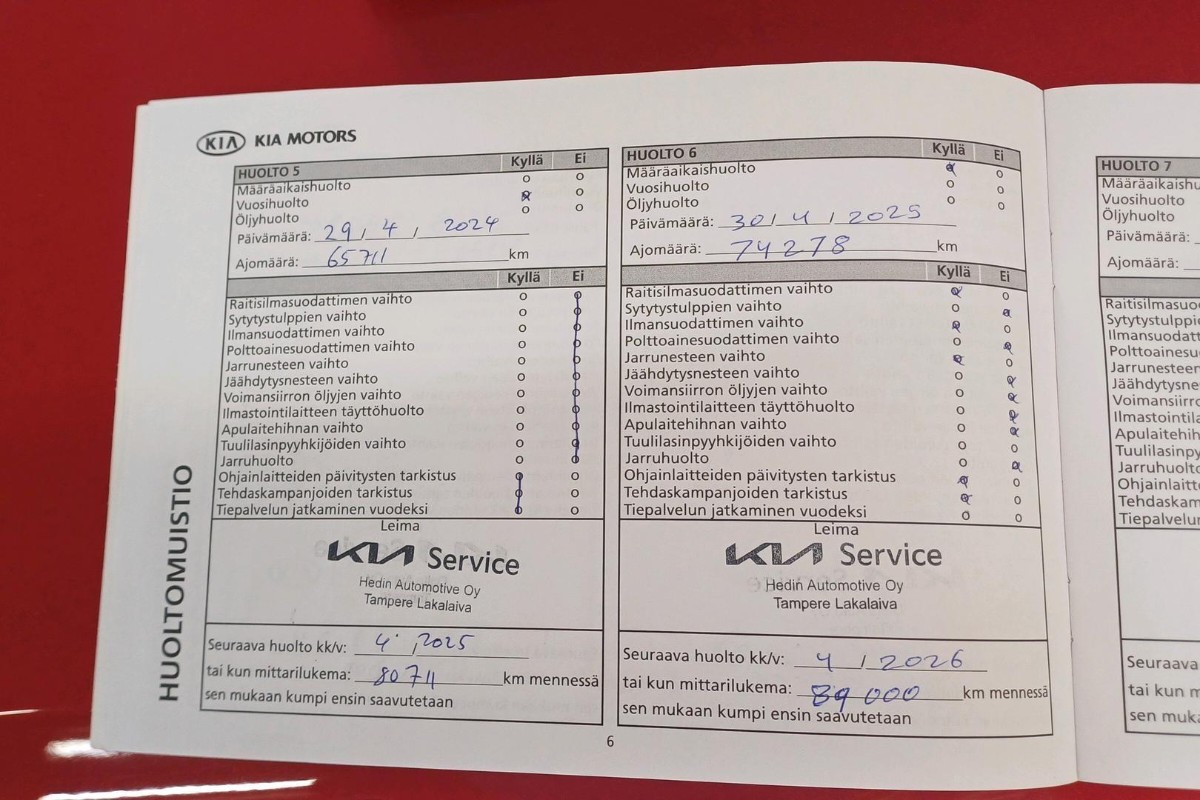 KIA KIA MOTORS
HUOLTO 5 Kyllä Ei
Määräaikaishuolto
Vuosihuolto
Öljyhuolto
Päivämäärä: 29 / 4 / 2024
Ajomäärä: 65711 km
Kyllä Ei
Raitisilmasuodattimen vaihto
Sytytystulppien vaihto
Ilmansuodattimen vaihto
Polttoainesuodattimen vaihto
Jarrunesteen vaihto
Jäähdytysnesteen vaihto
Voimansiirron öljyjen vaihto
Ilmastointilaitteen täyttöhuolto
Apulaitehihnan vaihto
Tuulilasinpyyhkijöiden vaihto
Jarruhuolto
Ohjainlaitteiden päivitysten tarkistus
Tehdaskampanjoiden tarkistus
Tiepalvelun jatkaminen vuodeksi
Leima
KIA Service
Hedin Automotive Oy
Tampere Lakalaiva
Seuraava huolto kk/v: 4 / 2025
tai kun mittarilukema: 80711 km mennessä
sen mukaan kumpi ensin saavutetaan
HUOLTOMUISTIO
HUOLTO 6 Kyllä Ei
Määräaikaishuolto
Vuosihuolto
Öljyhuolto
Päivämäärä: 30 / 4 / 2025
Ajomäärä: 74278 km
Kyllä Ei
Raitisilmasuodattimen vaihto
Sytytystulppien vaihto
Ilmansuodattimen vaihto
Polttoainesuodattimen vaihto
Jarrunesteen vaihto
Jäähdytysnesteen vaihto
Voimansiirron öljyjen vaihto
Ilmastointilaitteen täyttöhuolto
Apulaitehihnan vaihto
Tuulilasinpyyhkijöiden vaihto
Jarruhuolto
Ohjainlaitteiden päivitysten tarkistus
Tehdaskampanjoiden tarkistus
Tiepalvelun jatkaminen vuodeksi
Leima
KIA Service
Hedin Automotive Oy
Tampere Lakalaiva
Seuraava huolto kk/v: 4 / 2026
tai kun mittarilukema: 89 000 km mennessä
sen mukaan kumpi ensin saavutetaan
6
HUOLTO 7
Määräaikaishu
Vuosihuolto
Öljyhuolto
Päivämäärä:
Ajomäärä:
Raitisilmasuo
Sytytystulppie
Ilmansuodatt
Polttoainesuo
Jarrunesteen
Jäähdytysnes
Voimansiirro
Ilmastointilai
Apulaitehihn
Tuulilasinpy
Jarruhuolto
Ohjainlaitte
Tehdaskam
Tiepalvelun
Seuraava
tai kun m
sen muka